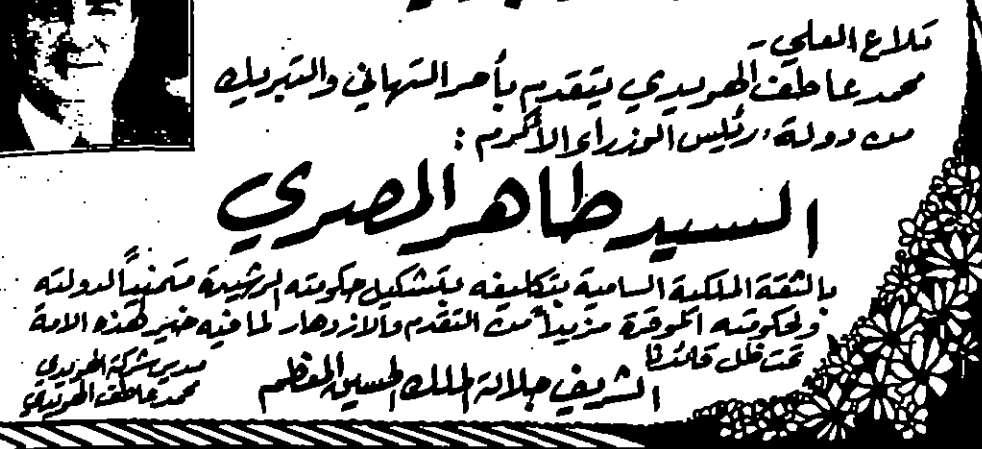 تلاع العلي -
محمد عاطف الهويدي يتقدم بأحر التهاني والتبريك
من دولة رئيس الوزراء الأكرم :
السيد طاهر المصري
بالثقة الملكية السامية بتكليفه بتشكيل حكومته الرشيدة متمنياً لدولته
ولحكومته الموقرة مزيداً من التقدم والازدهار لما فيه خير هذه الامة
تحت ظل قائدنا
الشريف جلالة الملك الحسين المعظم
مدير شركة الهويدي
محمد عاطف الهويدي